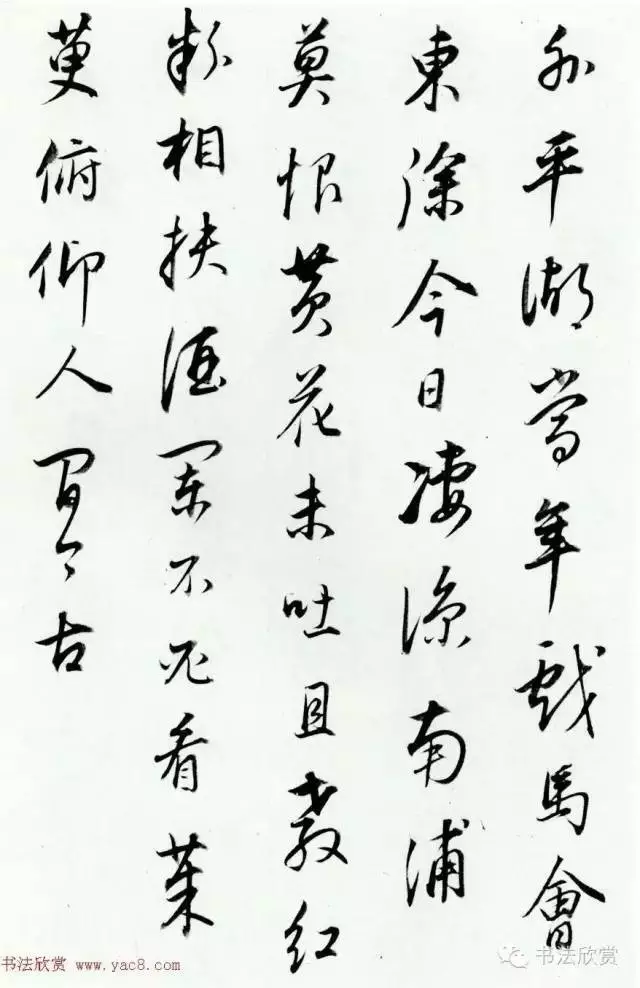 外平湖當年戲馬會
東徐今日凄涼南浦
莫恨黄花未吐且教红
粉相扶酒闌不必看茱
萸俯仰人間今古
书法欣赏 www.yac8.com
书法欣赏